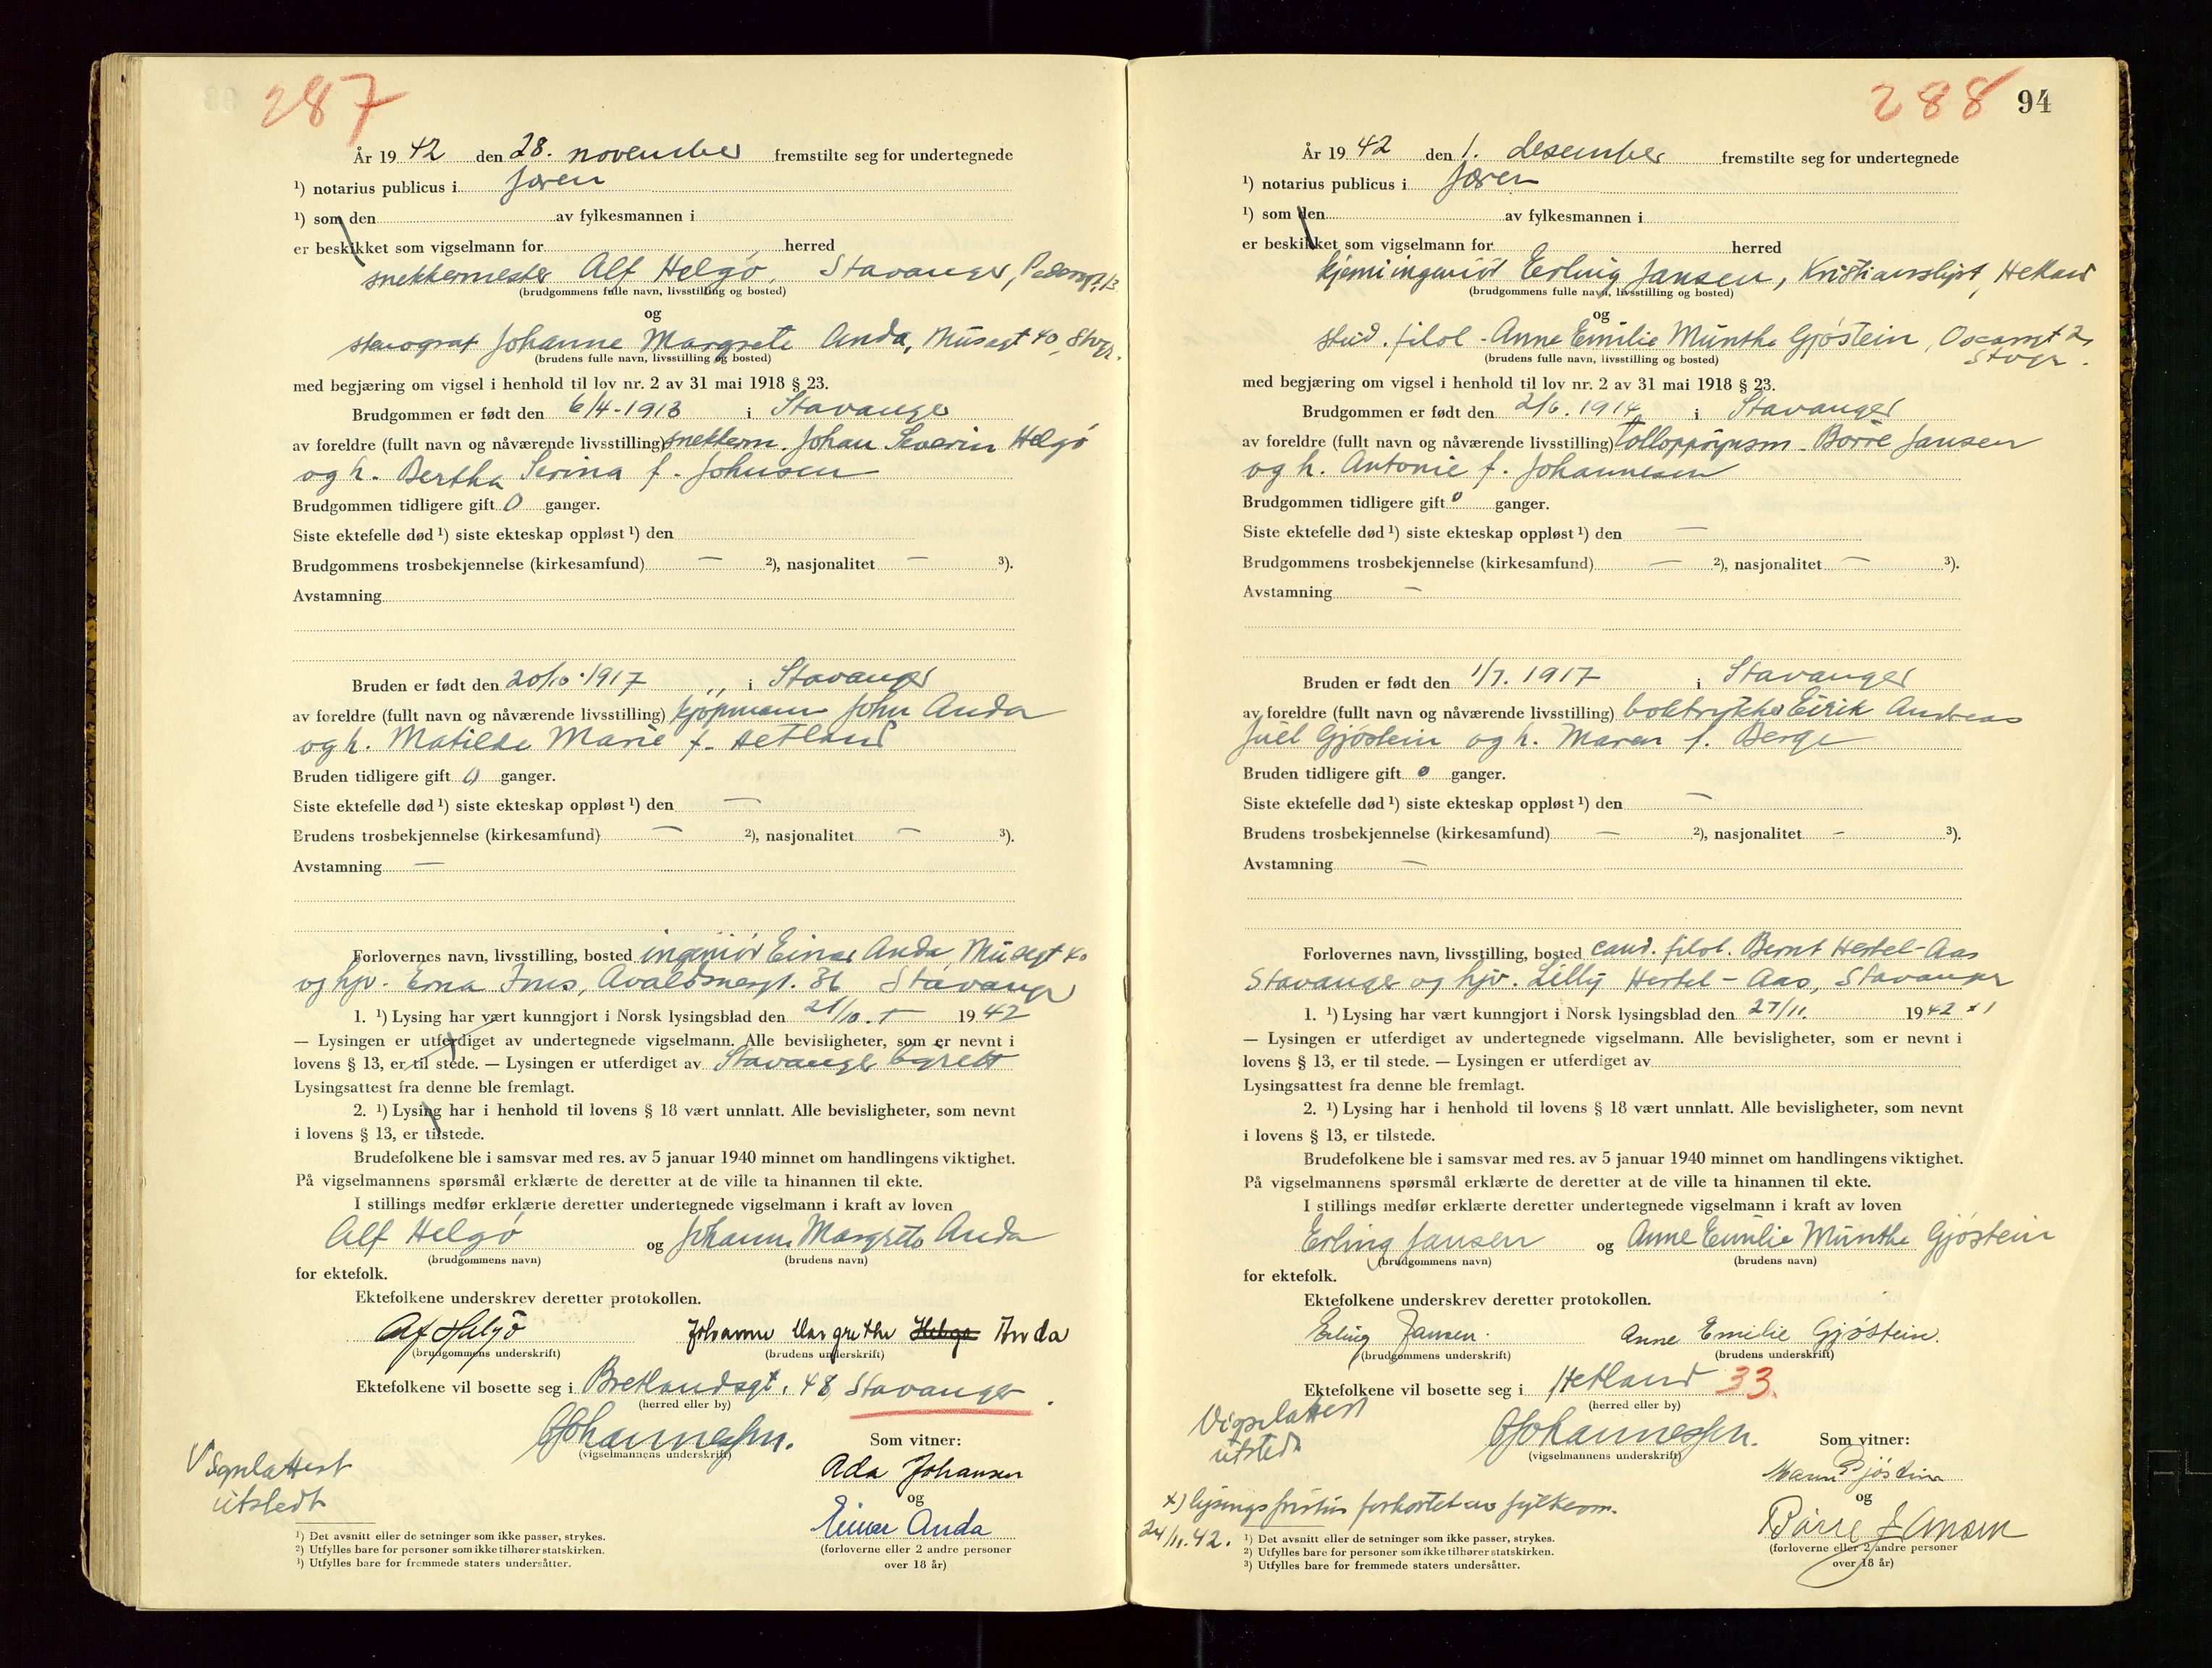 287
År 1942 den 28. november fremstilte seg for undertegnede
¹) notarius publicus i Jæren
¹) som den av fylkesmannen i
er beskikket som vigselmann for herred
snekkermester Alf Helgø, Stavanger, Pedersgt. 13
(brudgommens fulle navn, livsstilling og bosted)
og
stenograf Johanne Margrete Anda, Musegt 40, Stvgr.
(brudens fulle navn, livsstilling og bosted)
med begjæring om vigsel i henhold til lov nr. 2 av 31 mai 1918 § 23.
Brudgommen er født den 6/4-1913 i Stavanger
av foreldre (fullt navn og nåværende livsstilling) snekkerm. Johan Severin Helgø
og h. Bertha Serina f. Johnsen
Brudgommen tidligere gift 0 ganger.
Siste ektefelle død ¹) siste ekteskap oppløst ¹) den
Brudgommens trosbekjennelse (kirkesamfund) — ²), nasjonalitet — ³).
Avstamning
Bruden er født den 20/10.1917 ,, i Stavanger
av foreldre (fullt navn og nåværende livsstilling) kjøpmann John Anda
og h. Matilde Marie f. Hetland
Bruden tidligere gift 0 ganger.
Siste ektefelle død ¹) siste ekteskap oppløst ¹) den —
Brudens trosbekjennelse (kirkesamfund) — ²), nasjonalitet — ³).
Avstamning —
Forlovernes navn, livsstilling, bosted ingeniør Einar Anda, Musegt 40
og hjv. Erna Fries, Avaldsnesgt. 36 Stavanger
1. ¹) Lysing har vært kunngjort i Norsk lysingsblad den 21/10. 1942
— Lysingen er utferdiget av undertegnede vigselmann. Alle bevisligheter, som er nevnt i
lovens § 13, er til stede. — Lysingen er utferdiget av Stavanger byrett
Lysingsattest fra denne ble fremlagt.
2. ¹) Lysing har i henhold til lovens § 18 vært unnlatt. Alle bevisligheter, som nevnt
i lovens § 13, er tilstede.
Brudefolkene ble i samsvar med res. av 5 januar 1940 minnet om handlingens viktighet.
På vigselmannens spørsmål erklærte de deretter at de ville ta hinannen til ekte.
I stillings medfør erklærte deretter undertegnede vigselmann i kraft av loven
Alf Helgø og Johanne Margrete Anda
(brudgommens navn) (brudens navn)
for ektefolk.
Ektefolkene underskrev deretter protokollen.
Alf Helgø Johanne Margrethe Helgø Anda
(brudgommens underskrift) (brudens underskrift)
Ektefolkene vil bosette seg i Bretlandsgt. 48 Stavanger.
(herred eller by)
Johannessen.
(vigselmannens underskrift)
Som vitner:
Vigselattest
utstedt
Ada Johansen
og
Einar Anda
(forloverne eller 2 andre personer
over 18 år)
¹) Det avsnitt eller de setninger som ikke passer, strykes.
²) Utfylles bare for personer som ikke tilhører statskirken.
³) Utfylles bare for fremmede staters undersåtter.
288 94
År 1942 den 1. desember fremstilte seg for undertegnede
¹) notarius publicus i Jæren
¹) som den av fylkesmannen i
er beskikket som vigselmann for herred
kjemiingeniør Erling Jansen, Kristianslyst, Hetland
(brudgommens fulle navn, livsstilling og bosted)
og
stud. filol. Anne Emilie Munthe Gjøstein, Oscarsgt 2,
Stvgr.
(brudens fulle navn, livsstilling og bosted)
med begjæring om vigsel i henhold til lov nr. 2 av 31 mai 1918 § 23.
Brudgommen er født den 2/6. 1914 i Stavanger
av foreldre (fullt navn og nåværende livsstilling) Tolloppsynsm. Børre Jansen
og h. Antonie f. Johannesen
Brudgommen tidligere gift 0 ganger.
Siste ektefelle død ¹) siste ekteskap oppløst ¹) den —
Brudgommens trosbekjennelse (kirkesamfund) — ²), nasjonalitet — ³).
Avstamning —
Bruden er født den 1/7. 1917 i Stavanger
av foreldre (fullt navn og nåværende livsstilling) boktrykker Eirik Andreas
Juel Gjøstein og h. Maren f. Berge
Bruden tidligere gift 0 ganger.
Siste ektefelle død ¹) siste ekteskap oppløst ¹) den —
Brudens trosbekjennelse (kirkesamfund) — ²), nasjonalitet — ³).
Avstamning —
Forlovernes navn, livsstilling, bosted cand. filol. Bernt Hertel-Aas
Stavanger og hjv. Lilly Hertel-Aas, Stavanger
1. ¹) Lysing har vært kunngjort i Norsk lysingsblad den 27/11. 1942 x)
— Lysingen er utferdiget av undertegnede vigselmann. Alle bevisligheter, som er nevnt i
lovens § 13, er til stede. — Lysingen er utferdiget av
Lysingsattest fra denne ble fremlagt.
2. ¹) Lysing har i henhold til lovens § 18 vært unnlatt. Alle bevisligheter, som nevnt
i lovens § 13, er tilstede.
Brudefolkene ble i samsvar med res. av 5 januar 1940 minnet om handlingens viktighet.
På vigselmannens spørsmål erklærte de deretter at de ville ta hinannen til ekte.
I stillings medfør erklærte deretter undertegnede vigselmann i kraft av loven
Erling Jansen og Anne Emilie Munthe Gjøstein
(brudgommens navn) (brudens navn)
for ektefolk.
Ektefolkene underskrev deretter protokollen.
Erling Jansen. Anne Emilie Gjøstein.
(brudgommens underskrift) (brudens underskrift)
Ektefolkene vil bosette seg i Hetland 33.
(herred eller by)
Vigselattest
utstedt
Johannessen.
(vigselmannens underskrift)
Som vitner:
Maren Gjøstein
og
Børre Jansen
(forloverne eller 2 andre personer
over 18 år)
x) lysingsfristen forkortet av fylkesm.
24/11.42.
¹) Det avsnitt eller de setninger som ikke passer, strykes.
²) Utfylles bare for personer som ikke tilhører statskirken.
³) Utfylles bare for fremmede staters undersåtter.